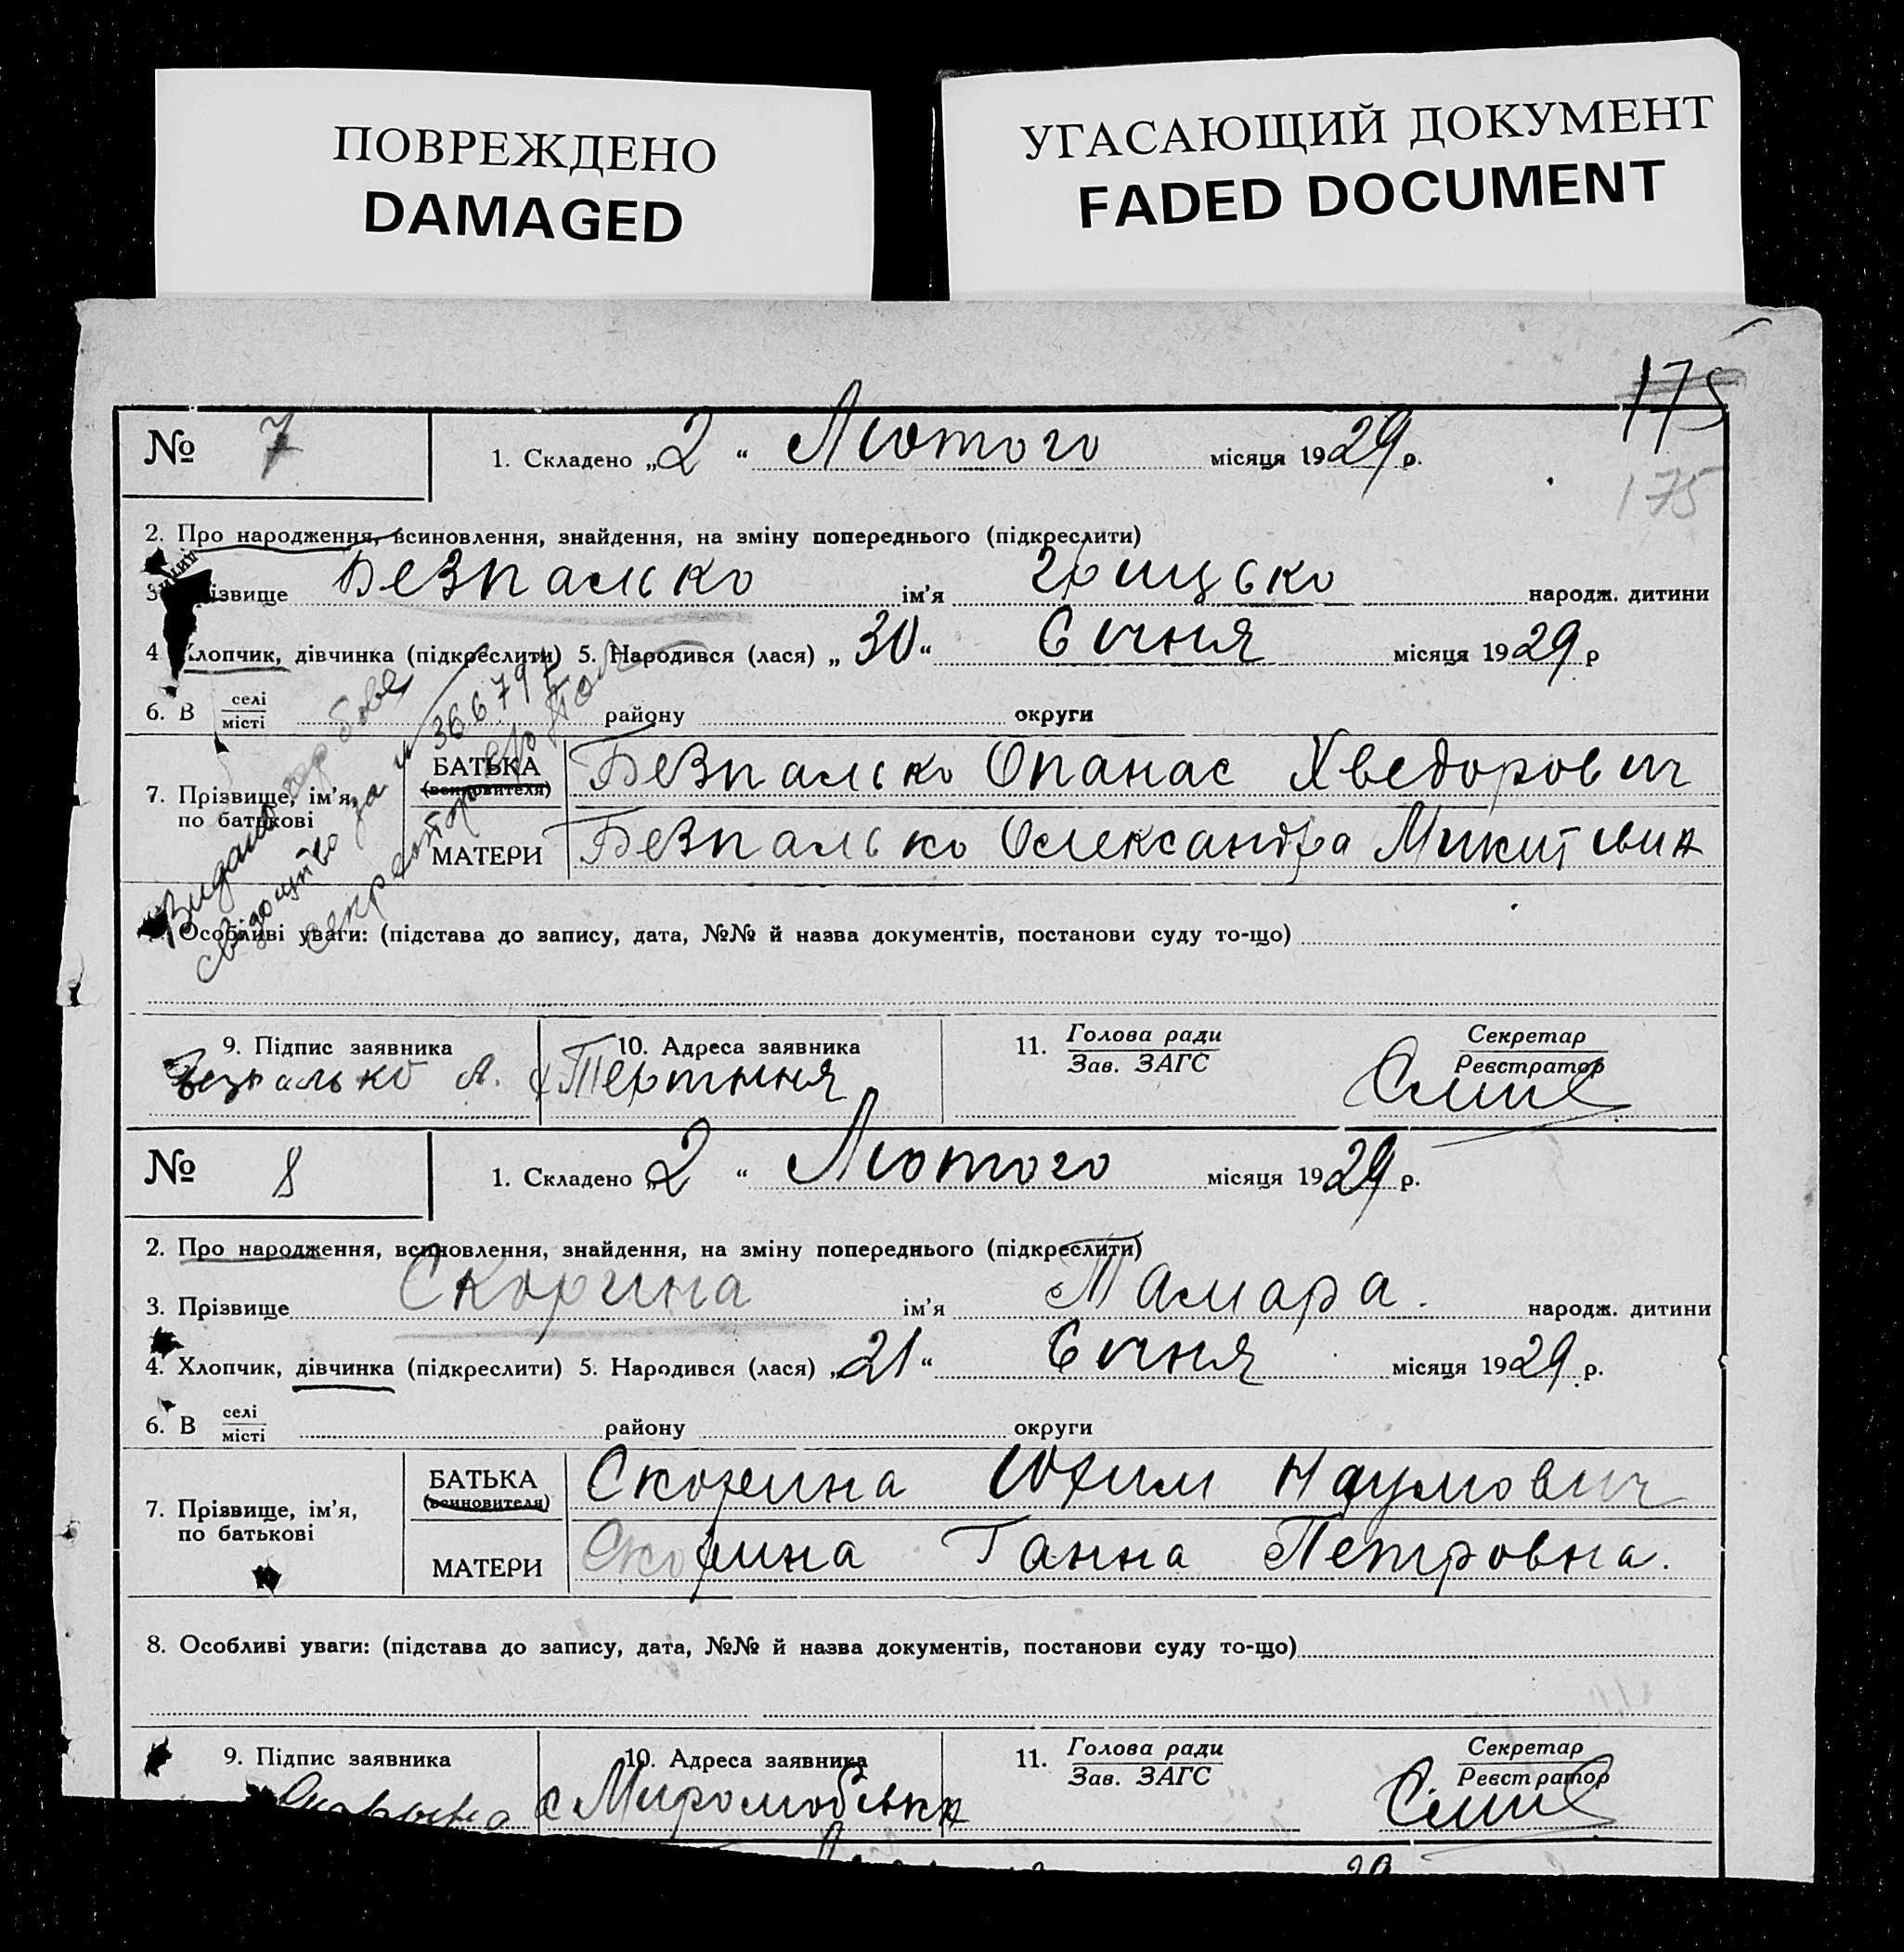 ПОВРЕЖДЕНО
DAMAGED
УГАСАЮЩИЙ ДОКУМЕНТ
FADED DOCUMENT
175
175
№ 7
1. Складено „2“ Лютого місяця 1929 р.
2. Про народження, всиновлення, знайдення, на зміну попереднього (підкреслити)
3 різвище Безпалько ім'я Грицько народж. дитини
4 Хлопчик, дівчинка (підкреслити) 5. Народився (лася) „30“ Січня місяця 1929 р
6. В селі/місті район у округи
7. Прізвище, ім'я, по батькові
БАТЬКА (всиновителя) Безпалько Опанас Хведорович
МАТЕРИ Безпалько Олександра Микитівна
Видано
свідоцтво за № 366795
Особливі уваги: (підстава до запису, дата, №№ й назва документів, постанови суду то-що)
9. Підпис заявника 10. Адреса заявника 11. Голова ради/Зав. ЗАГС Секретар/Реєстратор
Безпалько А. с Тертишня
№ 8
1. Складено „2“ Лютого місяця 1929 р.
2. Про народження, всиновлення, знайдення, на зміну попереднього (підкреслити)
3. Прізвище Скорина ім'я Тамара. народж. дитини
4. Хлопчик, дівчинка (підкреслити) 5. Народився (лася) „21“ Січня місяця 1929 р.
6. В селі/місті району округи
7. Прізвище, ім'я, по батькові
БАТЬКА (всиновителя) Скорина Юхим Наумович
МАТЕРИ Скорина Ганна Петровна.
8. Особливі уваги: (підстава до запису, дата, №№ й назва документів, постанови суду то-що)
9. Підпис заявника 10. Адреса заявника 11. Голова ради/Зав. ЗАГС Секретар/Реєстратор